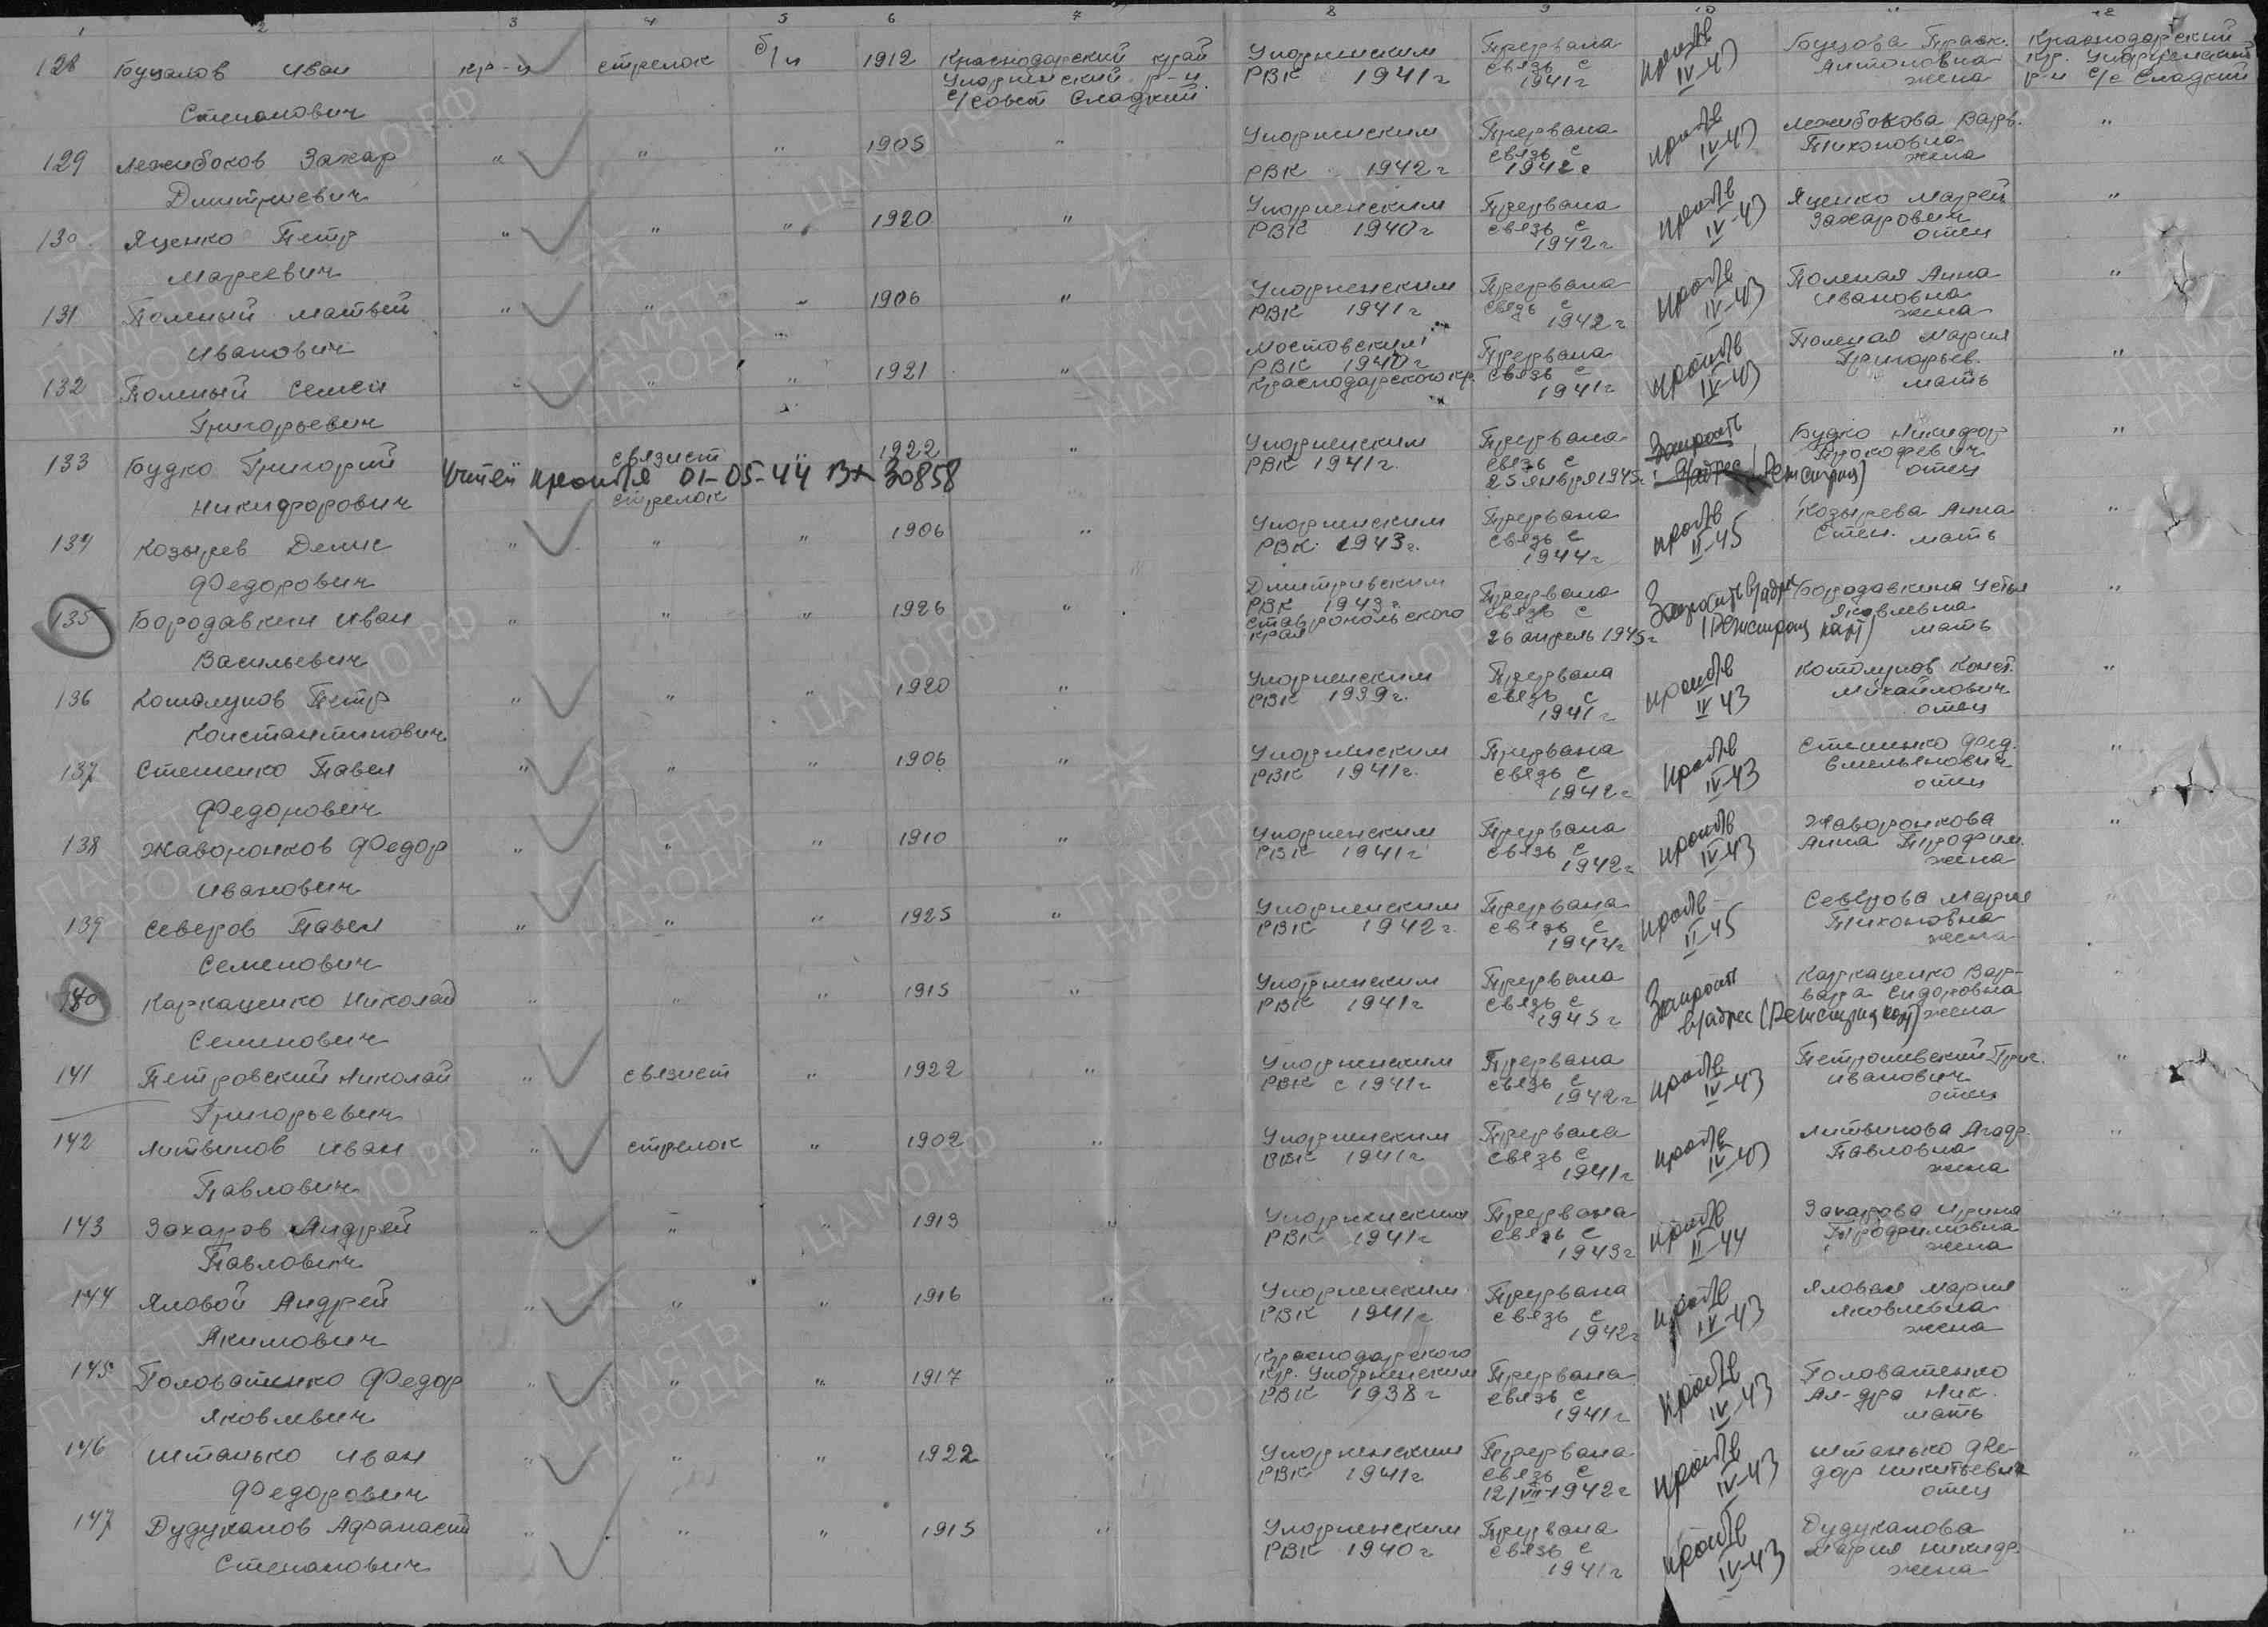 1 2 3 4 5 6 7 8 9 10 11 12
128 Гуцалов Иван Степанович кр-ц стрелок б/п 1912 Краснодарский край Упорненский р-н с/совет Сладкий Упорненским РВК 1941 г Прервана связь с 1941 г проп б/в IV-43 Антоновна жена Краснодарский кр. Упорненский р-н с/с Сладкий
129 Межибоков Захар Дмитриевич " " " 1905 " Упорненским РВК 1942 г Прервана связь с 1942 г проп б/в IV-43 Межибокова Варв. Тихоновна жена "
130 Яценко Петр Мареевич " " " 1920 " Упорненским РВК 1940 г Прервана связь с 1942 г проп б/в IV-43 Яценко Марей Захарович отец "
131 Поленый Матвей Иванович " " " 1906 " Упорненским РВК 1941 г Прервана связь с 1942 г проп б/в IV-43 Поленая Анна Ивановна жена "
132 Поленый Семен Григорьевич " " " 1921 " Мостовским РВК 1940 г Краснодарского кр. Прервана связь с 1941 г проп б/в IV-43 Поленая Мария Григорьев. мать "
133 Будко Григорий Никифорович связист 1922 " Упорненским РВК 1941 г. Прервана связь с 25 января 1945 г Запросить в/адрес Будко Никифор Прокофевич отец "
Учтен пропб/в 01-05-44 Вх 30858
134 Козырев Денис Федорович " стрелок " " 1906 " Упорненским РВК 1943 г. Прервана связь с 1944 г проп б/в II-45 Козырева Анна Степ. мать "
135 Бородавкин Иван Васильевич " " " 1926 " Дмитривским РВК 1943 г. Ставропольского края Прервана связь с 26 апрель 1945 г Запросить в/адрес (Регистрац карт) Бородавкина Устья Яковлевна мать "
136 Котолупов Петр Константинович " " " 1920 " Упорненским РВК 1939 г. Прервана связь с 1941 г проп б/в IV 43 Котолупов Конст. Михайлович отец "
137 Стешенко Павел Федорович " " " 1906 " Упорненским РВК 1941 г. Прервана связь с 1942 г проп б/в IV-43 Стешенко Фед. Емельянович отец "
138 Жаворонков Федор Иванович " " " 1910 " Упорненским РВК 1941 г Прервана связь с 1942 г проп б/в IV-43 Жаворонкова Анна Трофим. жена "
139 Северов Павел Семенович " " " 1925 " Упорненским РВК 1942 г. Прервана связь с 1944 г проп б/в II-45 Северова Мария Тихоновна жена "
140 Каркаценко Николай Семенович " " " 1915 " Упорненским РВК 1941 г Прервана связь с 1945 г Запросит в/адрес (Регистрац карт) Каркаценко Варвара Сидоровна жена "
141 Петровский Николай Григорьевич " связист " 1922 " Упорненским РВК с 1941 г Прервана связь с 1942 г проп б/в IV-43 Григ. Иванович отец "
142 Литвинов Иван Павлович " стрелок " 1902 " Упорненским РВК 1941 г Прервана связь с 1941 г проп б/в IV-43 Литвинова Агаф. Павловна жена "
143 Захаров Андрей Павлович " " " 1913 " Упорненским РВК 1941 г Прервана связь с 1943 г проп б/в II-44 Захарова Ирина Трофимовна жена "
144 Яловой Андрей Акимович " " " 1916 " Упорненским РВК 1941 г Прервана связь с 1942 г проп б/в IV-43 Яловая Мария Яковлевна жена "
145 Головатенко Федор Яковлевич " " " 1917 " Краснодарского кр. Упорненским РВК 1938 г Прервана связь с 1941 г проп б/в IV-43 Головатенко Ал-дра Ник. мать "
146 Штанько Иван Федорович " " " 1922 " Упорненским РВК 1941 г Прервана связь с 12/VII-1942 г проп б/в IV-43 Штанько Федор Никитьевич отец "
147 Дудуканов Афанасий Степанович " " " 1915 " Упорненским РВК 1940 г Прервана связь с 1941 г проп б/в IV-43 Дудуканова Мария Никифр. жена "
ПАМЯТЬ НАРОДА
ЦАМО.РФ